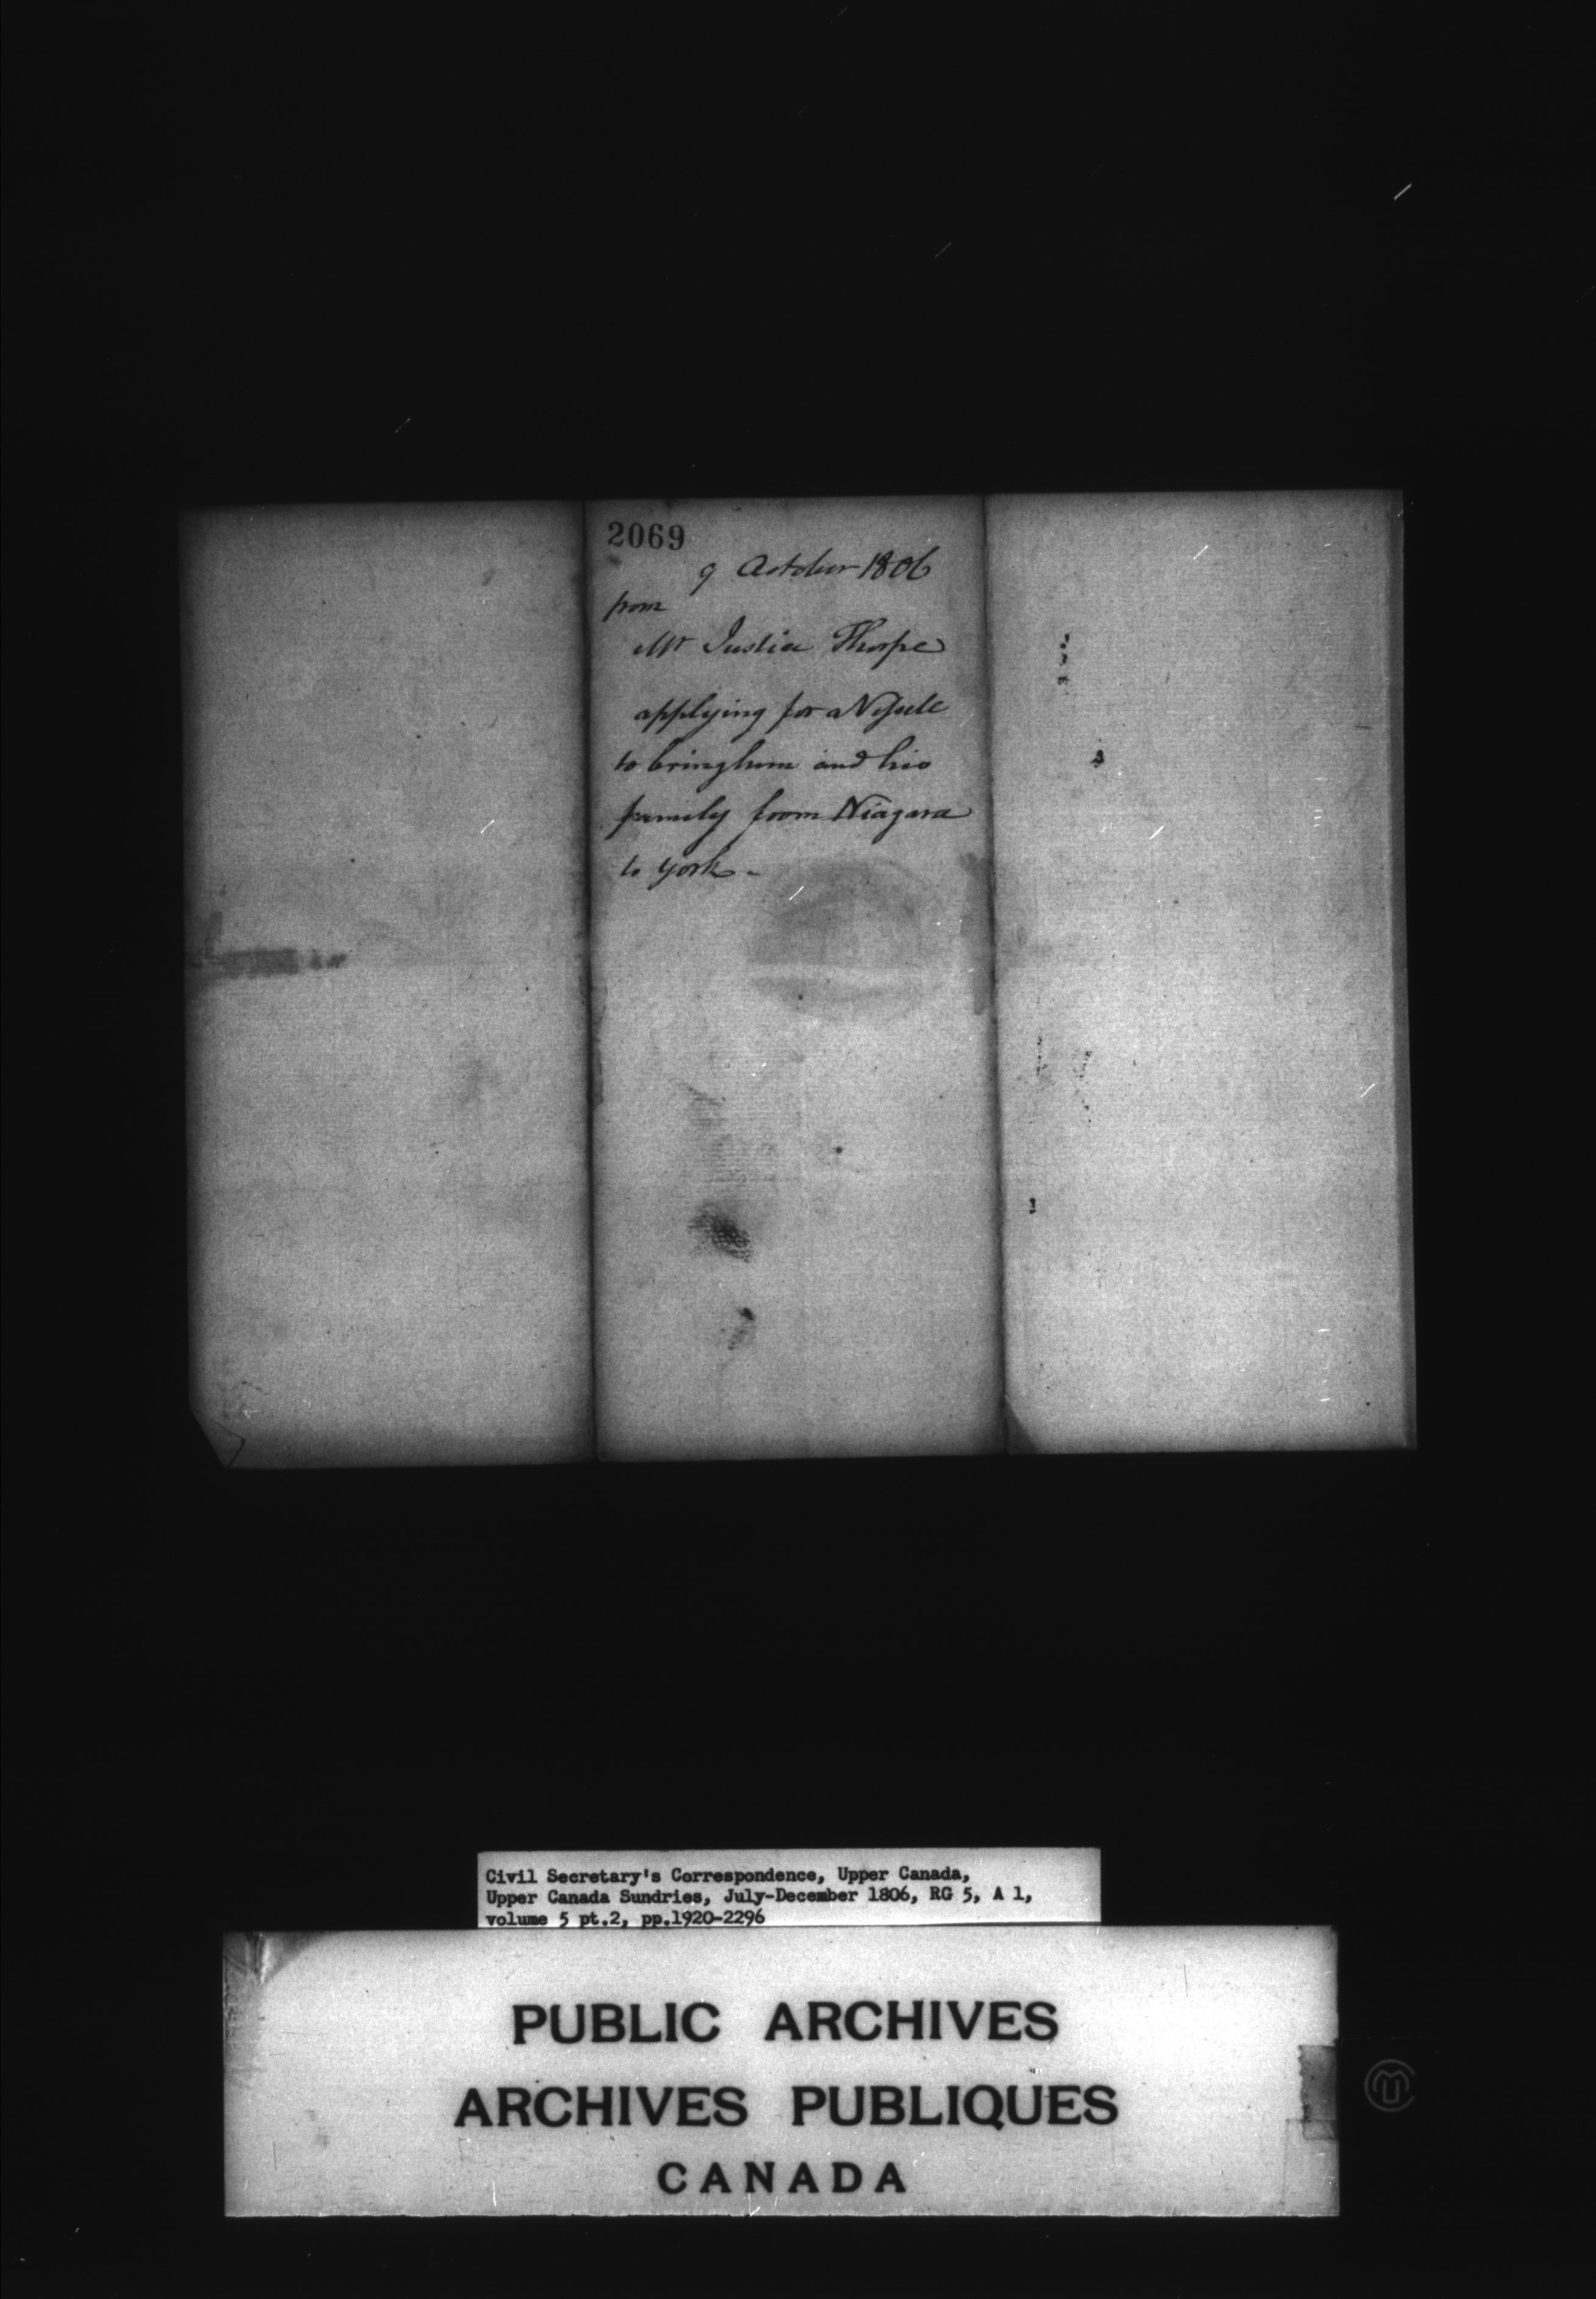 2069
9 October 1806
from
Mr Justice Thorpe
applying for a Vessel
to bring him and his
family from Niagara
to York -
Civil Secretary's Correspondence, Upper Canada,
Upper Canada Sundries, July-December 1806, RG 5, A 1,
volume 5 pt.2, pp.1920-2296
PUBLIC ARCHIVES
ARCHIVES PUBLIQUES
CANADA